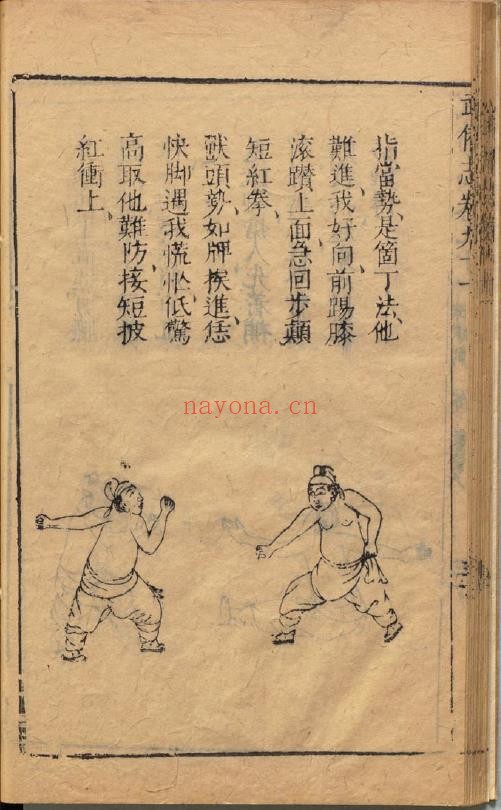 武備志卷九十一
指當勢是箇丁法、他
難進我好向前踢膝
滚躦上面急回步顛
短紅拳、
獸頭勢、如牌挨進恁
快脚遇我慌忙低驚
高取他難防、接短披
紅衝上、
nayona.cn